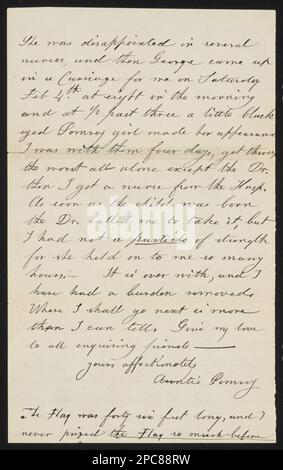 She was disappointed in several
nurses, and then George came up
in a Carriage for me on Saturday
Feb 4th at eight in the morning
and at ½ past three a little black
eyed Pomroy girl made her appearance
I was with them four days, got through
the worst all alone except the Dr.
then I got a nurse from the Hosp.
As soon as the child was born
the Dr. called me to take it, but
I had not a particle of strength
for she held on to me so many
hours.— It is over with, and I
have had a burden removed.
Where I shall go next is more
than I can tell. Give my love
to all enquiring friends —
yours affectionately
Auntie Pomroy
The Flag was forty six feet long, and I
never prized the Flag so much before
alamy
Image ID: 2PC88RW
www.alamy.com